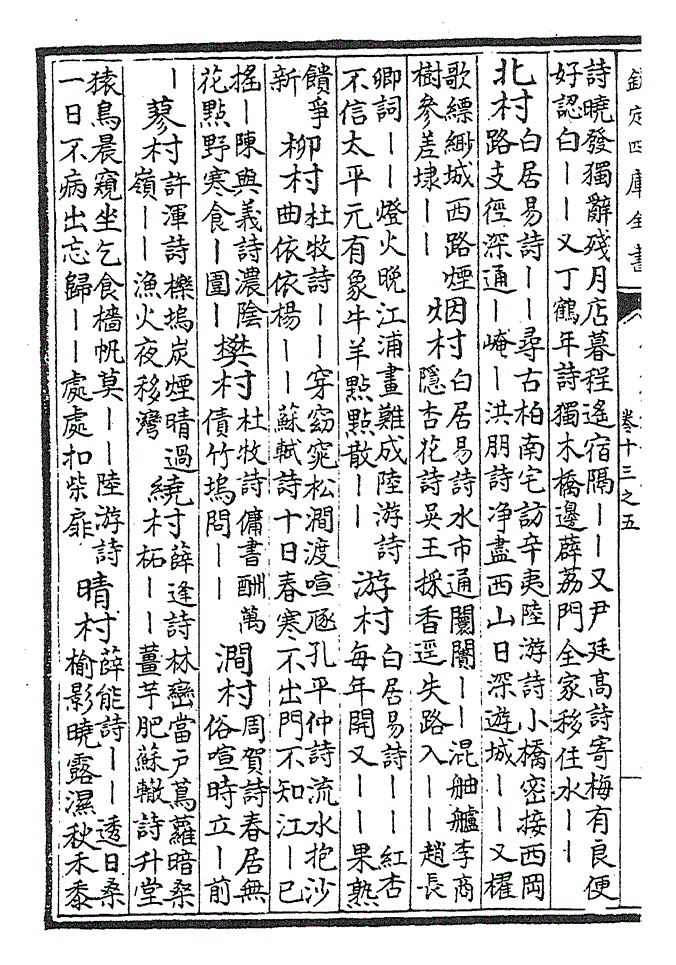 欽定四庫全書
卷十三之五
詩曉發獨辭殘月店暮程遙宿隔——又尹廷高詩寄梅有良便
好認白——又丁鶴年詩獨木橋邊薜荔門全家移住水——
北村
白居易詩——尋古柏南宅訪辛夷陸游詩小橋密接西岡
路支徑深通—崦—洪朋詩净盡西山日深遊城——又櫂
歌縹緲城西路煙
樹參差埭——
烟村
白居易詩水市通闤闠——混舳艫李商
隱杏花詩吳王採香逕失路入——趙長
卿詞——燈火晚江浦畫難成陸游詩
不信太平元有象牛羊點點散——
游村
白居易詩——紅杏
每年開又——果熟
饋爭
新
柳村
杜牧詩——穿窈窕松澗渡喧豗孔平仲詩流水抱沙
曲依依楊——蘇軾詩十日春寒不出門不知江—已
搖—陳與義詩濃陰
花點野寒食—圍—
樊村
杜牧詩傭書酬萬
債竹塢問——
澗村
周賀詩春居無
俗喧時立—前
—
蓼村
許渾詩櫟塢炭煙晴過
嶺——漁火夜移灣
繞村
薛逢詩林巒當户蔦蘿暗桑
柘——薑芋肥蘇轍詩升堂
猿鳥晨窺坐乞食檣帆莫——陸游詩
一日不病出忘歸——處處扣柴扉
晴村
薛能詩——透日桑
榆影曉露濕秋禾黍